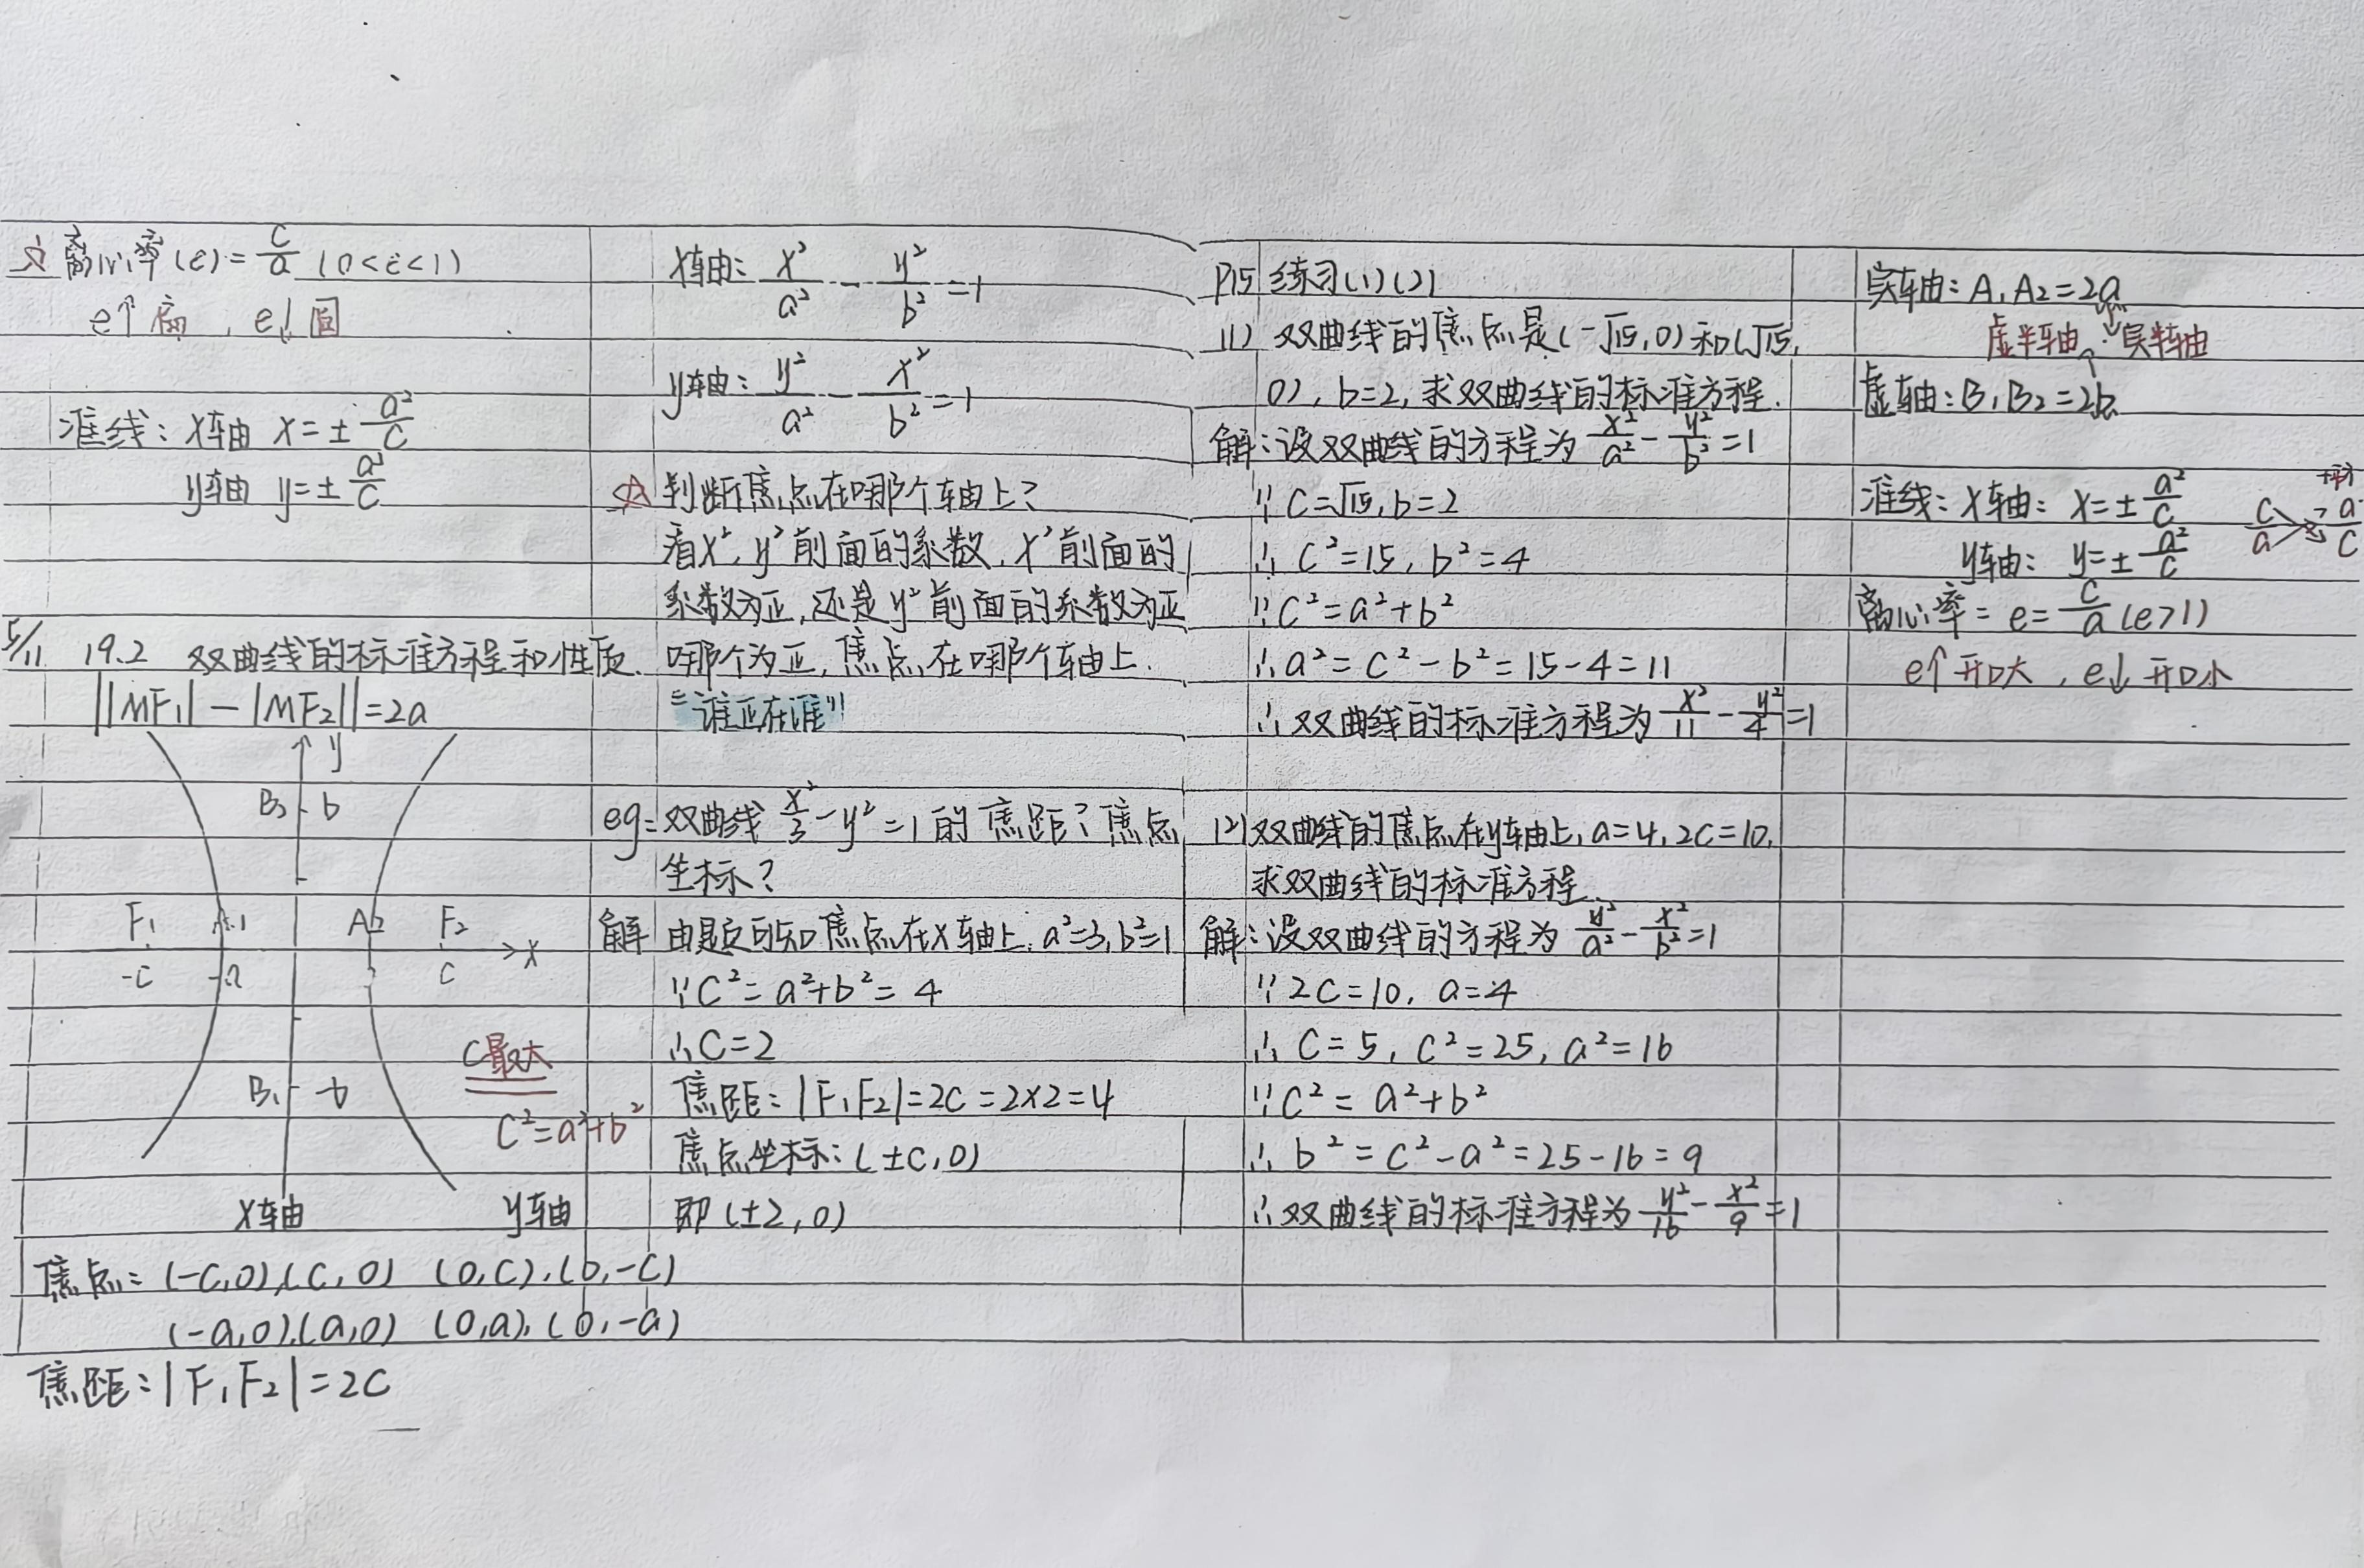 ☆ 离心率(e)=c/a (0<e<1)
e↑扁, e↓圆
准线: x轴 x=±a²/c
y轴 y=±a²/c
5/11 19.2 双曲线的标准方程和性质.
||MF₁|-|MF₂||=2a
y
B₂ b
F₁ A₁ A₂ F₂
x
-c -a c
C最大
B₁ -b
c²=a²+b²
x轴 y轴
焦点: (-c,0),(c,0) (0,c),(0,-c)
(-a,0),(a,0) (0,a),(0,-a)
焦距: |F₁F₂|=2c
x轴: x²/a² - y²/b² =1
y轴: y²/a² - x²/b² =1
☆ 判断焦点在哪个轴上?
看x²,y²前面的系数,x²前面的
系数为正,还是y²前面的系数为正
哪个为正,焦点在哪个轴上.
"谁正在谁"
eg: 双曲线 x²/3 - y²=1 的焦距?焦点
坐标?
解 由题可知焦点在x轴上, a²=3, b²=1
∵c²=a²+b²=4
∴c=2
焦距: |F₁F₂|=2c=2×2=4
焦点坐标: (±c,0)
即 (±2,0)
P15 练习(1)(2)
(1) 双曲线的焦点是(-√15,0)和(√15,
0), b=2, 求双曲线的标准方程.
解: 设双曲线的方程为 x²/a² - y²/b² =1
∵c=√15, b=2
∴c²=15, b²=4
∵c²=a²+b²
∴a²=c²-b²=15-4=11
∴双曲线的标准方程为 x²/11 - y²/4 =1
(2) 双曲线的焦点在y轴上, a=4, 2c=10,
求双曲线的标准方程.
解: 设双曲线的方程为 y²/a² - x²/b² =1
∵2c=10, a=4
∴c=5, c²=25, a²=16
∵c²=a²+b²
∴b²=c²-a²=25-16=9
∴双曲线的标准方程为 y²/16 - x²/9 =1
实轴: A₁A₂=2a
虚半轴 实半轴
虚轴: B₁B₂=2b
准线: x轴: x=±a²/c
y轴: y=±a²/c
c/a a/c
离心率= e=c/a (e>1)
e↑开口大, e↓开口小